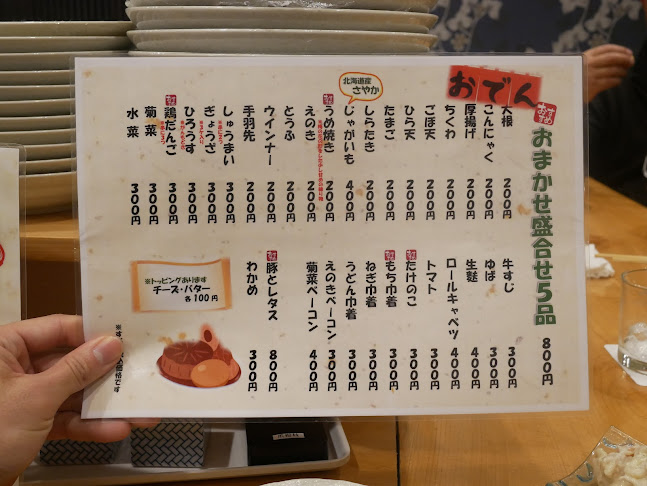 おでん
おすすめ
おまかせ盛合せ5品 800円
大根 200円
こんにゃく 200円
厚揚げ 200円
ちくわ 200円
ごぼ天 200円
ひら天 200円
たまご 200円
しらたき 200円
北海道産 さやか
じゃがいも 400円
うめ焼き 200円
えのき 200円
とうふ 200円
ウインナー 200円
手羽先 200円
しゅうまい 300円
ぎょうざ 300円
ひろうす 300円
鶏だんご 300円
菊菜 300円
水菜 300円
牛すじ 300円
ゆば 300円
生麩 400円
ロールキャベツ 400円
トマト 300円
たけのこ 300円
もち巾着 300円
ねぎ巾着 300円
うどん巾着 300円
えのきベーコン 300円
菊菜ベーコン 400円
豚とレタス 800円
わかめ 300円
※トッピングあります
チーズ・バター
各100円
価格です